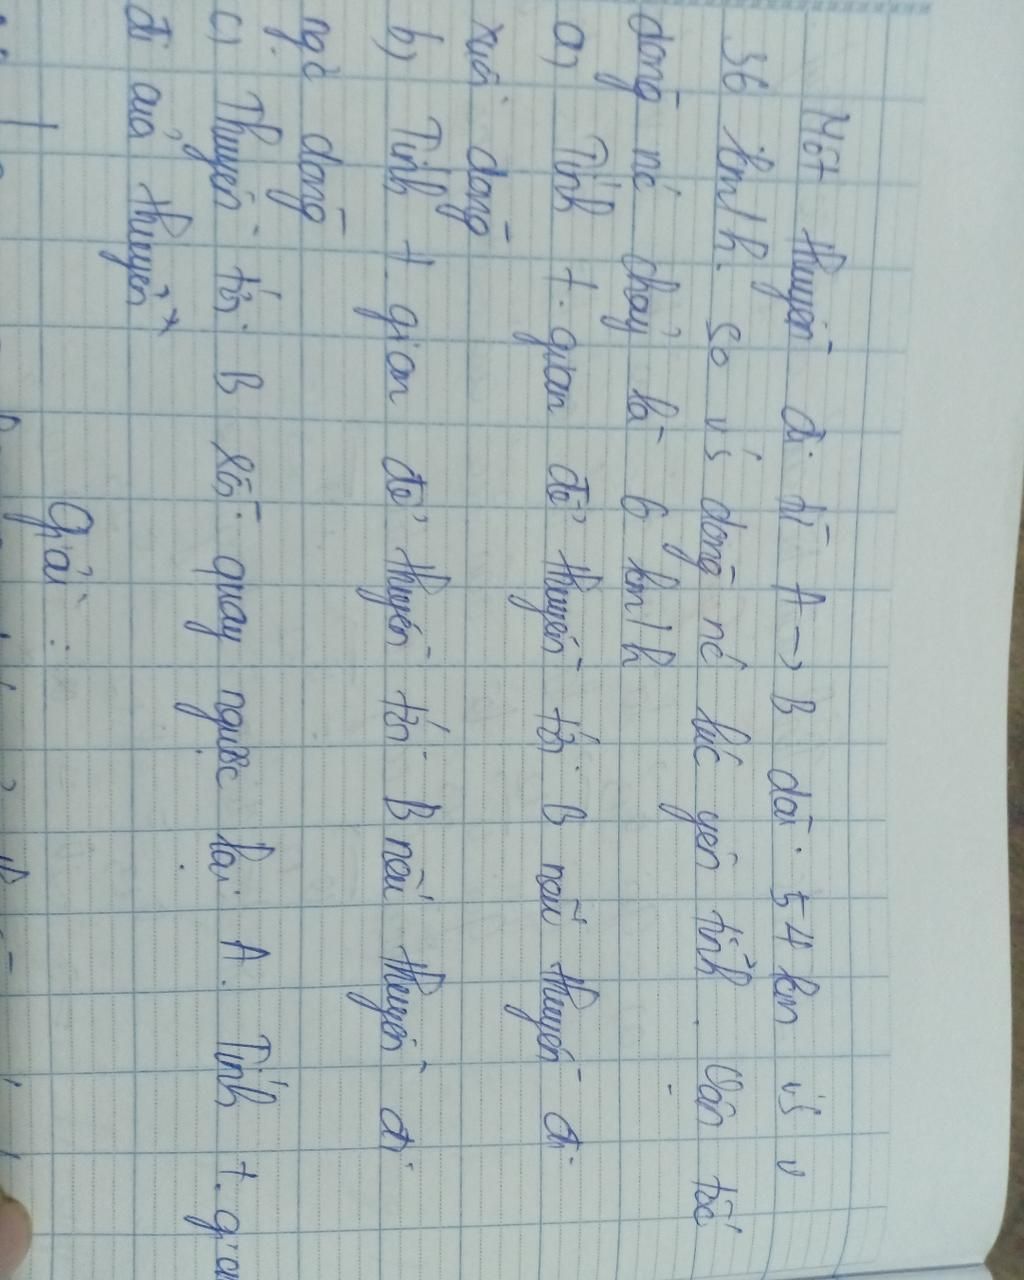 Một thuyền đi từ A → B dài 54 km v's v
36 km/h. So v's dòng nc' lúc yên tĩnh. Vận tốc
dòng nc' chảy là 6 km/h
a) Tính t. gian để thuyền tới B nếu thuyền đi
xuôi dòng
b) Tính t gian để thuyền tới B nếu thuyền đi
ngc dòng
c) Thuyền tới B rồi quay ngược lại A. Tính t. gian
đi của thuyền
Giải :